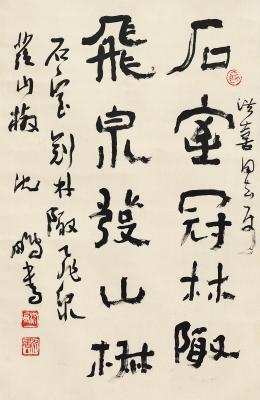 洪喜同志属
石室冠林陬
飛泉發山椒
石室冠林陬飛泉
發山椒 沈鵬書